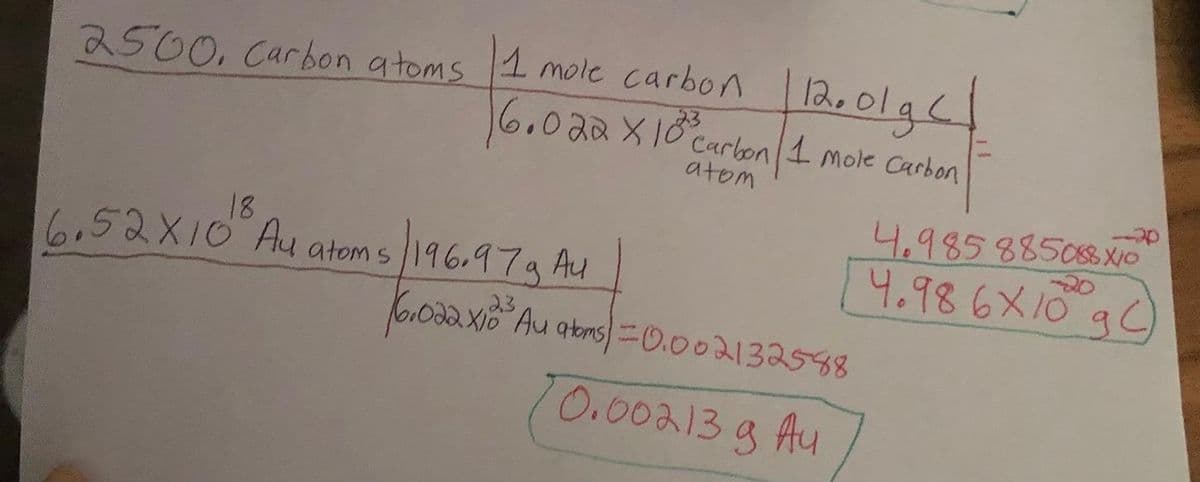 2500. Carbon atoms | 1 mole carbon | 12.01 g C |
6.022 X 10²³ carbon atom | 1 mole Carbon | =
4.985885088 X10⁻²⁰
4.986 X 10⁻²⁰ g C
6.52 X 10¹⁸ Au atoms | 196.97 g Au |
6.022 X10²³ Au atoms | = 0.002132588
0.00213 g Au